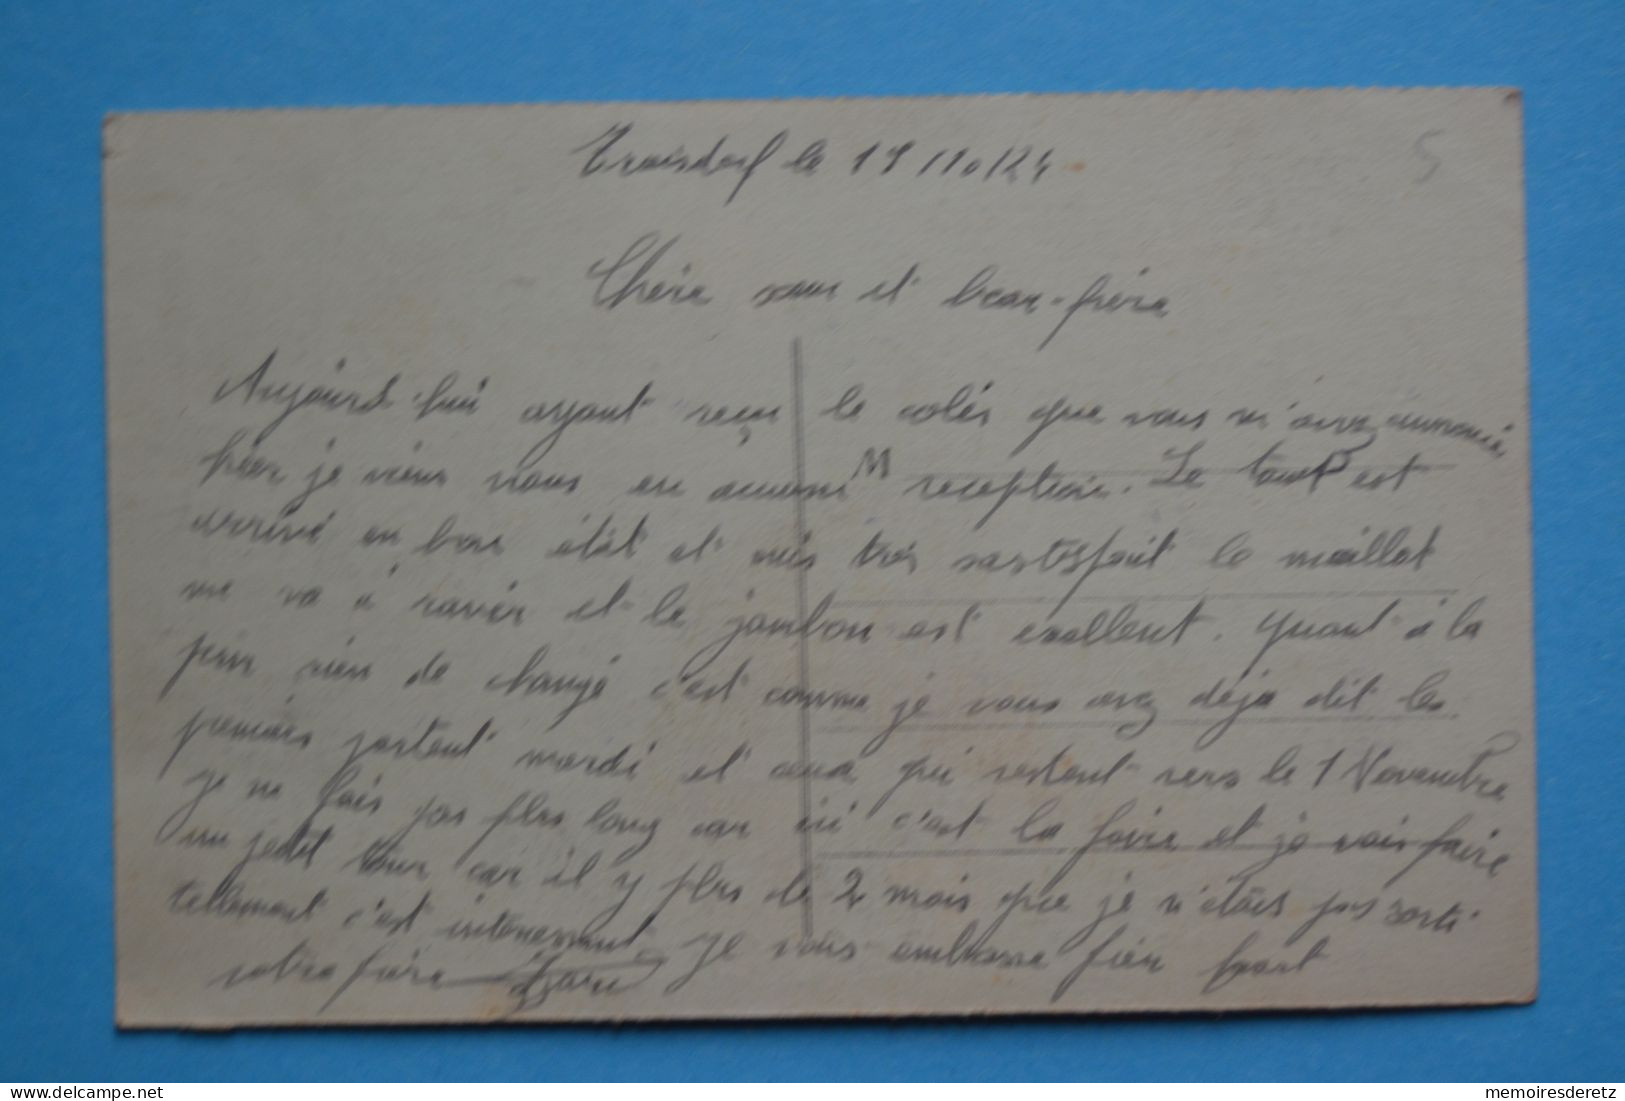 Troisdorf le 19/10/24
5
Chère sœur et beau-frère
Aujourd'hui ayant reçu le colis que vous m'avez annoncé
hier je viens vous en accuser réception. Le tout est
M
arrivé en bon état et suis très sastisfait le maillot
me va à ravir et le jambon est exellent. quant à la
perm rien de changé c'est comme je vous avez déja dit les
premiers partent mardi et ceux qui restent vers le 1 Novembre
je ne fais pas plus long car ici c'est la foire et je vais faire
un petit tour car il y plus de 2 mois que je n'étais pas sorti
tellement c'est intéressant. Je vous embrasse bien fort
votre frère
delcampe.net
memoiresderetz